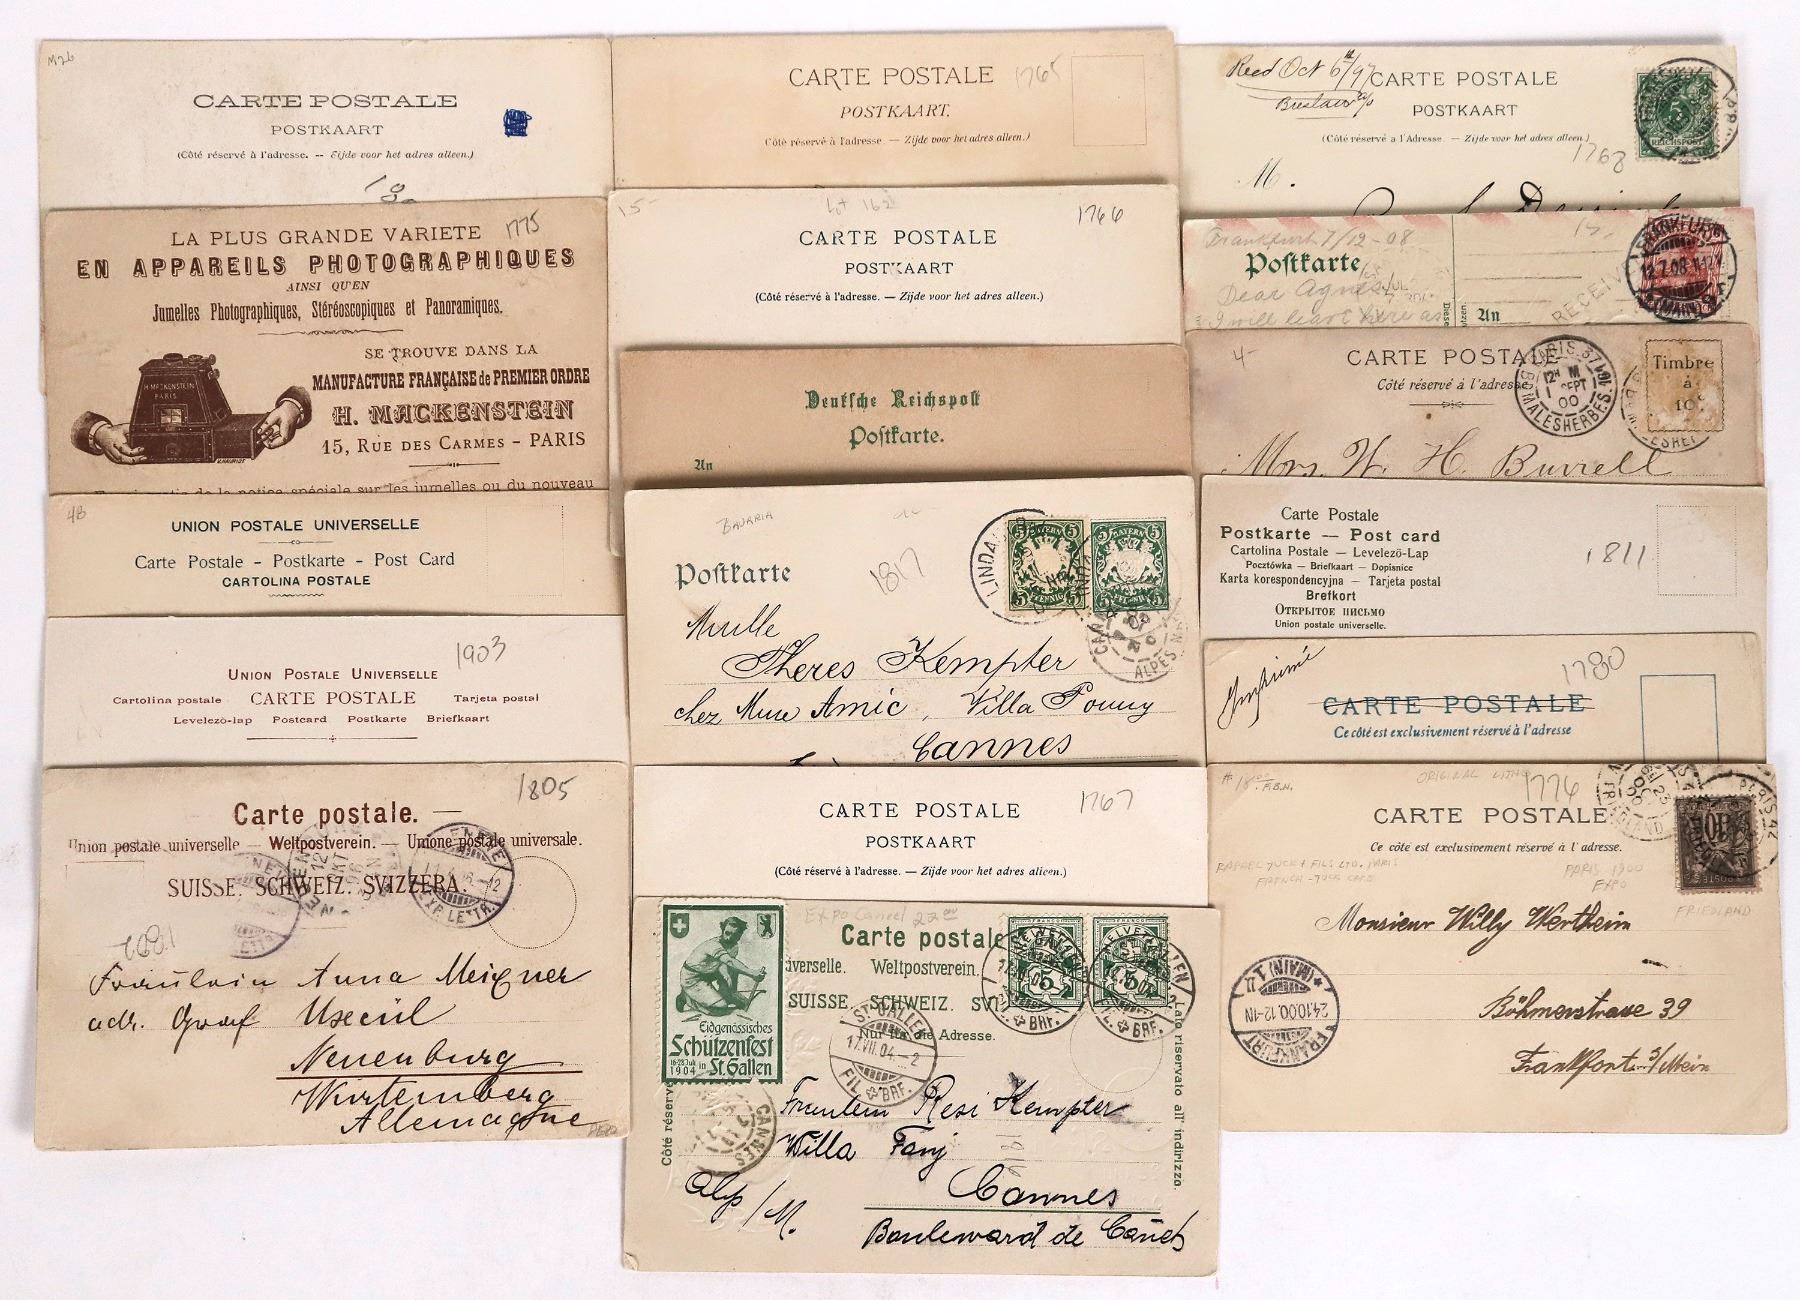 M26
CARTE POSTALE
POSTKAART
(Côté réservé à l'adresse. -- Zijde voor het adres alleen.)
1775
LA PLUS GRANDE VARIETE
EN APPAREILS PHOTOGRAPHIQUES
AINSI QU'EN
Jumelles Photographiques, Stéréoscopiques et Panoramiques.
SE TROUVE DANS LA
MANUFACTURE FRANÇAISE de PREMIER ORDRE
H. MACKENSTEIN
15, RUE DES CARMES - PARIS
H. MACKENSTEIN
PARIS
de la notice spéciale sur les jumelles ou du nouveau
48
UNION POSTALE UNIVERSELLE
Carte Postale - Postkarte - Post Card
CARTOLINA POSTALE
1903
UNION POSTALE UNIVERSELLE
Cartolina postale CARTE POSTALE Tarjeta postal
Levelezö-lap Postcard Postkarte Briefkaart
1805
Carte postale.
Union postale universelle — Weltpostverein. — Unione postale universale.
SUISSE. SCHWEIZ. SVIZZERA.
Fräulein Anna Meixner
adr. Graf Uxcüll
Neuenburg
Würtemberg
Allemagne
CARTE POSTALE
1765
POSTKAART.
(Côté réservé à l'adresse — Zijde voor het adres alleen.)
15-
Lot 162
1766
CARTE POSTALE
POSTKAART
(Côté réservé à l'adresse. — Zijde voor het adres alleen.)
Deutsche Reichspost
Postkarte.
An
BAVARIA
1817
Postkarte
BAYERN
5
PFENNIG
LINDAU
CANNES
ALPES
Mulle
Theres Kempter
chez Mme Amic, Villa Pouny
Cannes
CARTE POSTALE
1767
POSTKAART
(Côté réservé à l'adresse. — Zijde voor het adres alleen.)
Expo Cancel 22
Carte postale
universelle. Weltpostverein.
SUISSE. SCHWEIZ. SVI
Nur für die Adresse.
Eidgenössisches
Schützenfest
16-28 Juli
1904 in St. Gallen
FRANCO
HELVETIA
5
ST. GALLEN
17.VII.04-2
FIL. BRF.
CANNES
Côté réservé
Lato riservato all' indirizzo.
Fräulein Resi Kempter
Villa Fanj
Cannes
Alp/M.
Boulevard de Canet
Recd Oct 6th/97
Breslau
CARTE POSTALE
POSTKAART
(Côté réservé à l'Adresse — Zijde voor het adres allen.)
1768
M.
5
REICHSPOST
Frankfurt 7/12-08
15-
Postkarte
Dear Agnes
I will leave here as
An
RECEIVE
FRANKFURT
12.7.08.
(MAIN)
4-
CARTE POSTALE
Côté réservé à l'adresse
PARIS 37
12H M
1 SEPT
00
BD MALESHERBES.
Timbre
à
10c
Mrs. W. H. Burrell
Carte Postale
Postkarte — Post card
Cartolina Postale — Levelezö-Lap
Pocztówka — Briefkaart — Dopisnice
Karta korespondencyjna — Tarjeta postal
Brefkort
ОТКРЫТОЕ ПИСЬМО
Union postale universelle.
1811
Imprimé
1780
CARTE POSTALE
Ce côté est exclusivement réservé à l'adresse
ORIGINAL LITHO
1776
CARTE POSTALE
Ce côté est exclusivement réservé à l'adresse.
RAPHAEL TUCK & FILS LTD. PARIS
FRENCH-TUCK CARD
PARIS 1900
EXPO
FRIEDLAND
Monsieur Willy Wertheim
Böhmerstrasse 39
Frankfort s/Mein
FRANKFURT
24.10.00.12-1N
(MAIN) 1